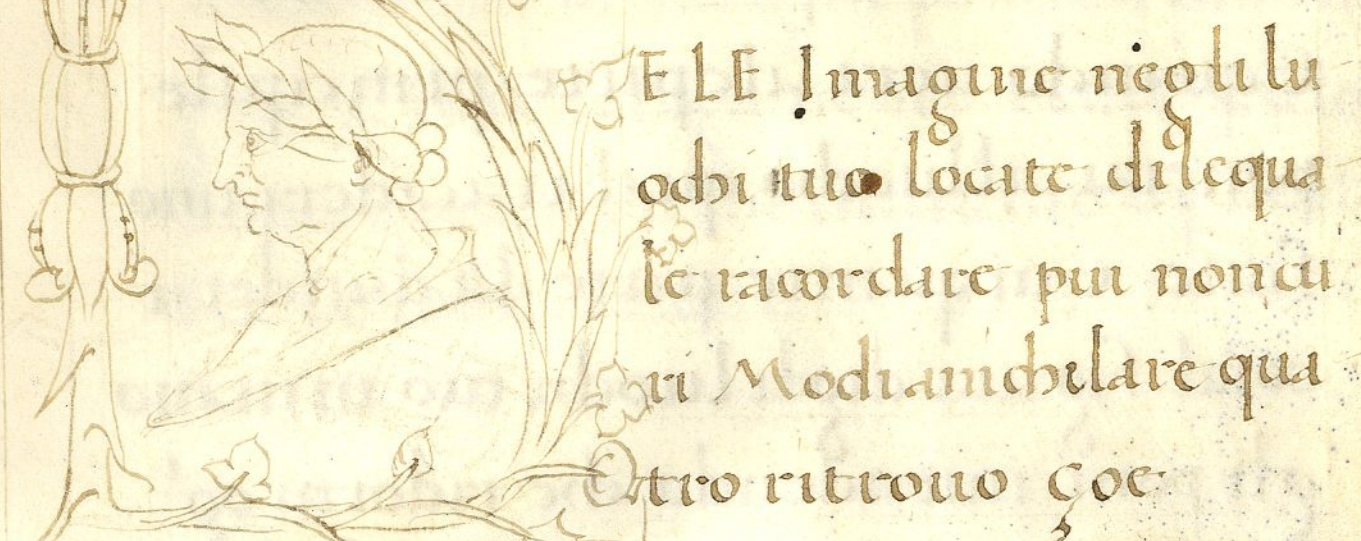 ELE Imagine negli lu
ochi tuo locate dilequa
le racordare piu non cu
ri Modi anichilare qua
tro ritrouo çoe